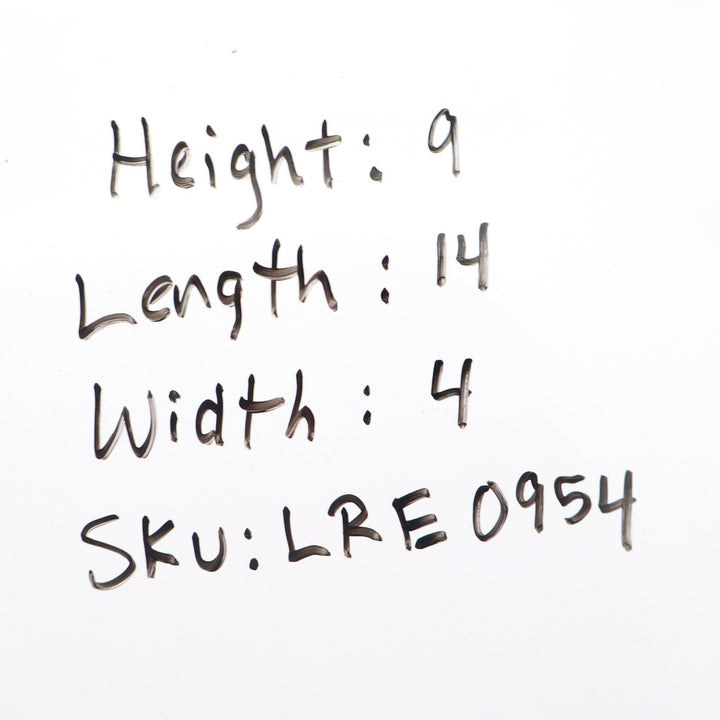 Height: 9
Length: 14
Width: 4
SKU: LRE 0954